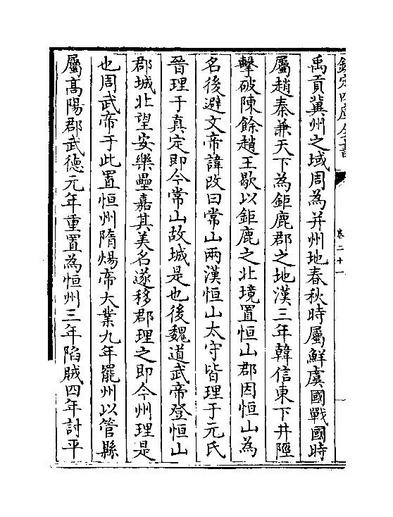 欽定四庫全書
卷二十一
禹貢冀州之域周為并州地春秋時屬鮮虞國戰國時
屬趙秦兼天下為鉅鹿郡之地漢三年韓信東下井陘
擊破陳餘趙王歇以鉅鹿之北境置恒山郡因恒山為
名後避文帝諱改曰常山兩漢恒山太守皆理于元氏
晉理于真定即今常山故城是也後魏道武帝登恒山
郡城北望安樂壘嘉其美名遂移郡理之即今州理是
也周武帝于此置恒州隋煬帝大業九年罷州以管縣
屬高陽郡武德元年重置為恒州三年陷賊四年討平